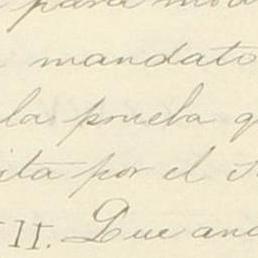 para mod
mandato
la prueba q
ita por el
II. Que an